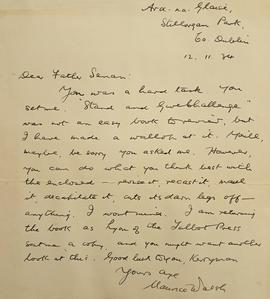 Ard-na-Glaise,
Stillorgan Park,
Co Dublin
12. 11. 34
Dear Father Senan:
Yours was a hard task you
set me. "Stand and Give Challenge"
was not an easy book to review, but
I have made a wallop at it. You'll,
maybe, be sorry you asked me. However,
you can do what you think best with
the enclosed — revise it, recast it, maul
it, decapitate it, cut its darn legs off —
anything. I won't mind. I am returning
the book as Lyon of the Talbot Press
sent me a copy, and you might want another
look at this. Good luck to you, Kerryman
Yours aye
Maurice Walsh